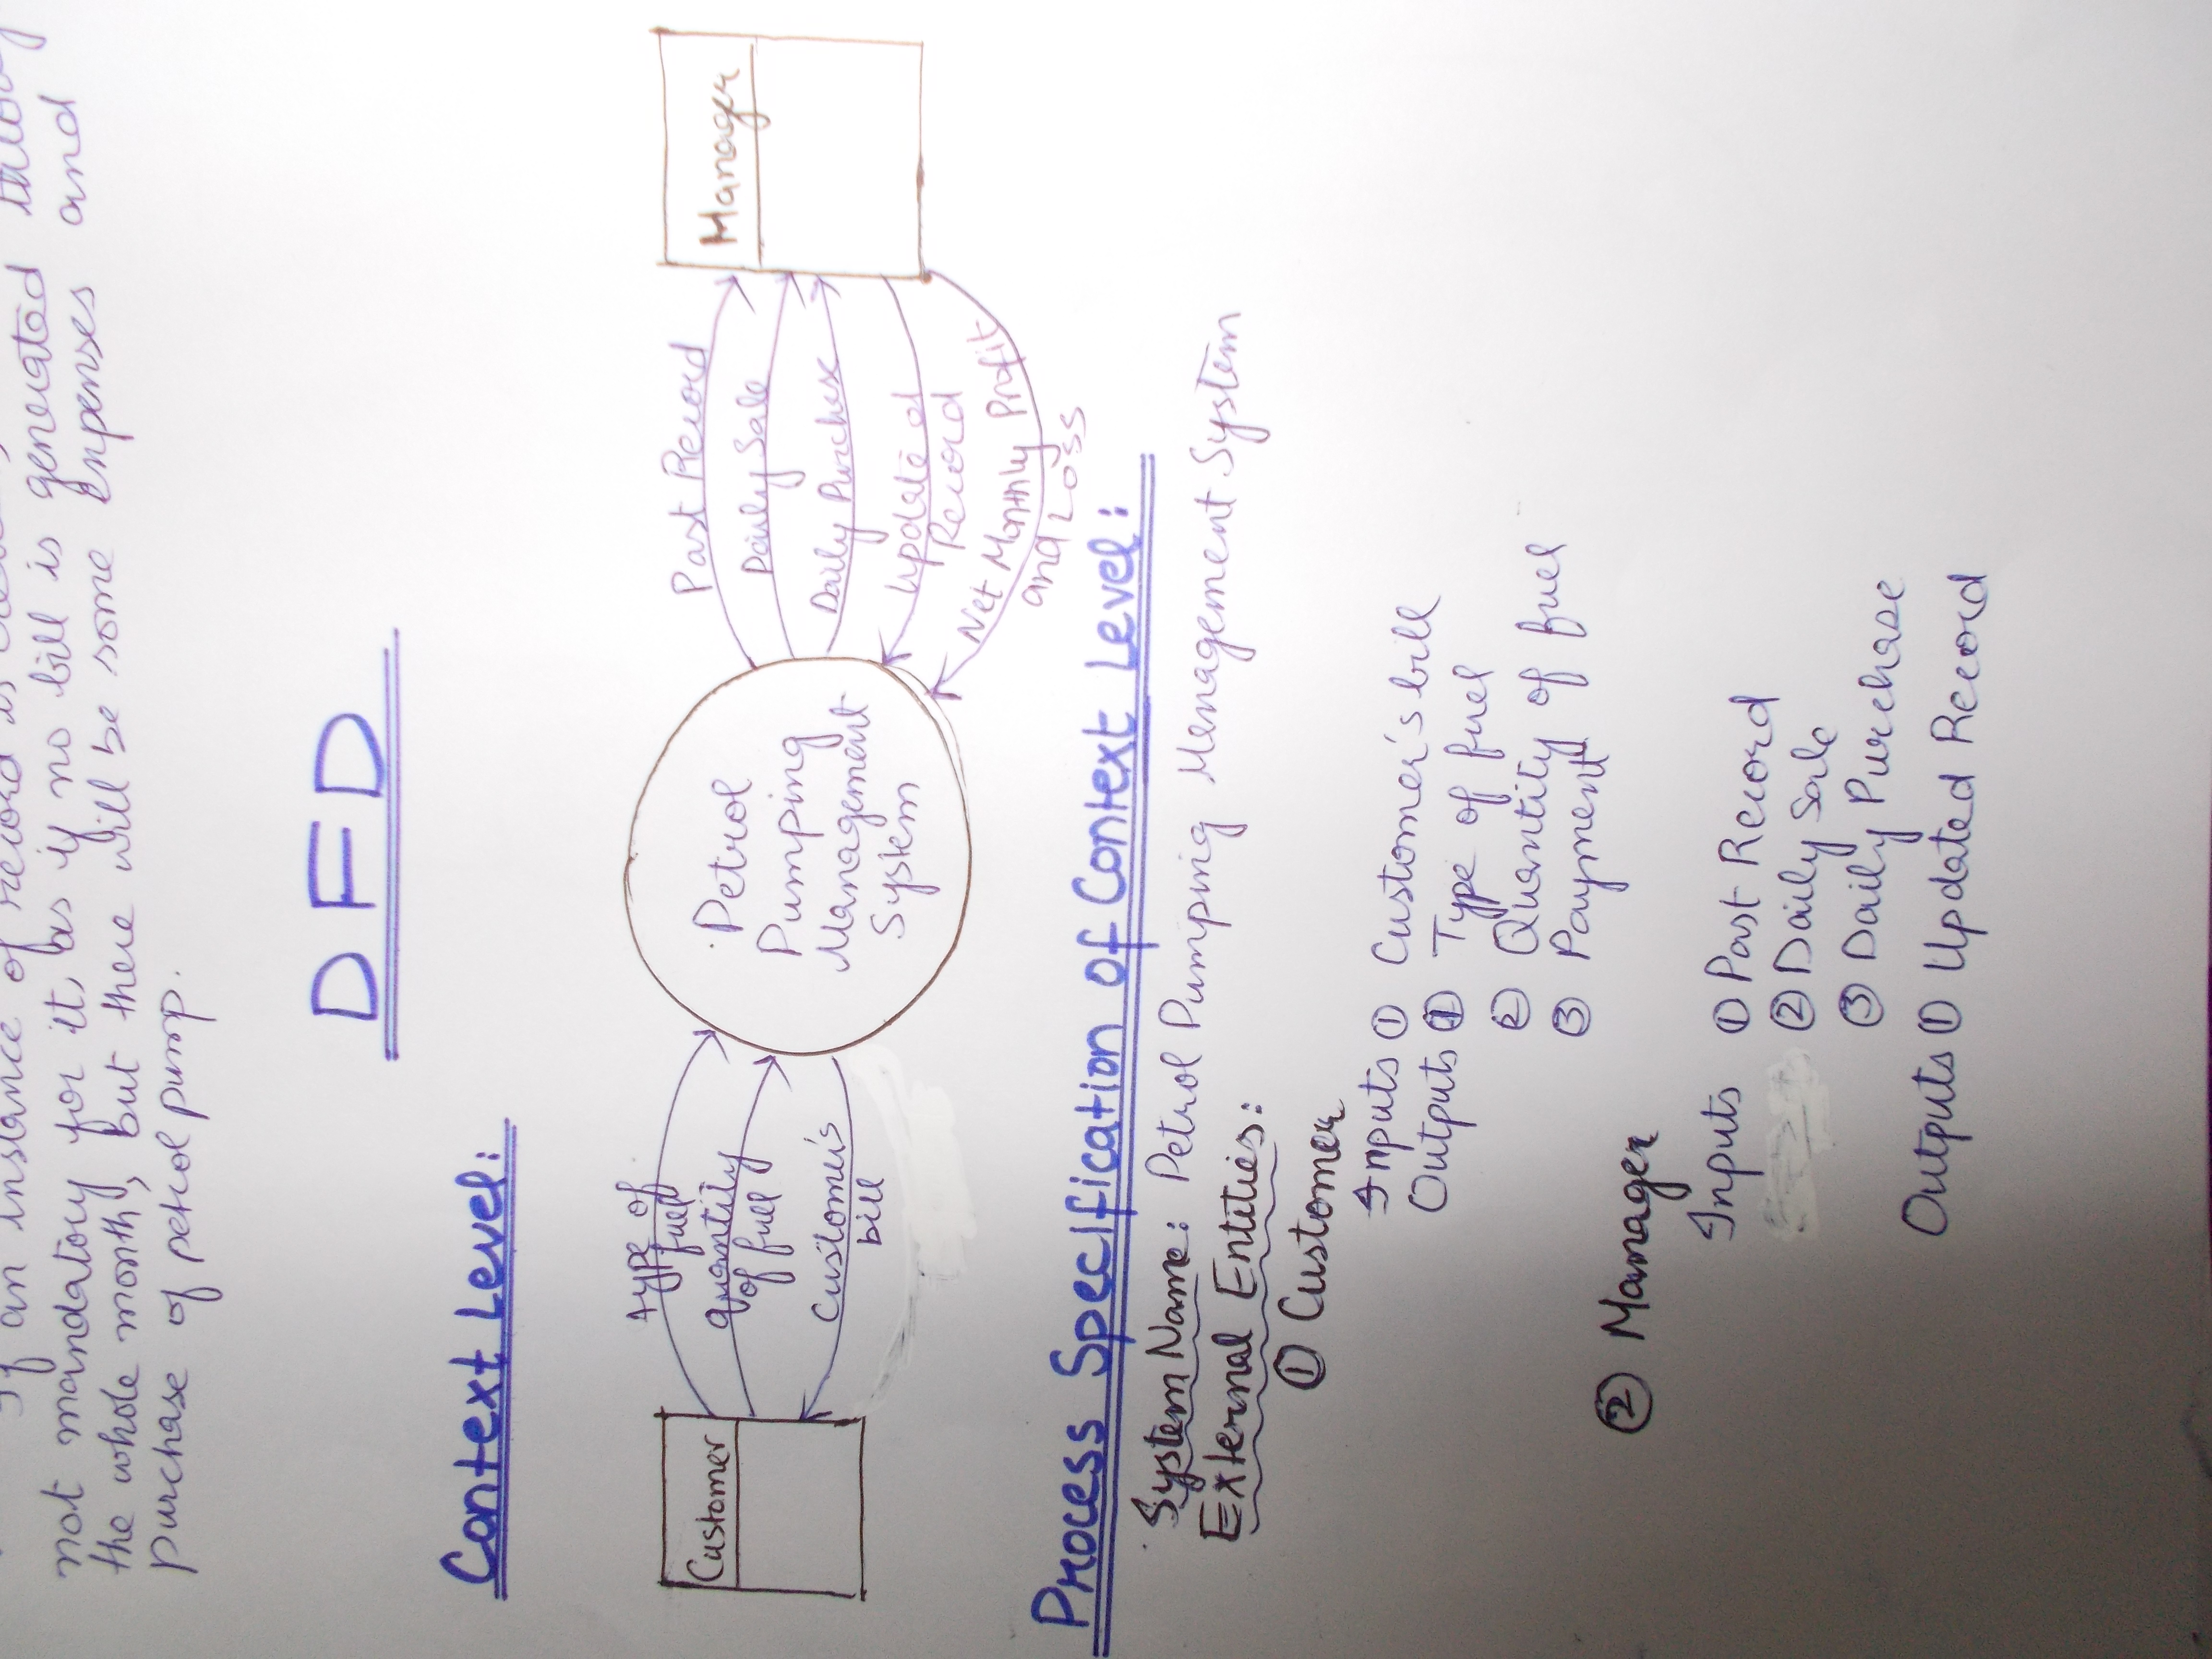 If an instance of record is
not mandatory for it, as if no bill is generated
the whole month, but there will be some expenses and
purchase of petrol pump.
DFD
Context Level:
Customer
type of
fuel
quantity
of fuel
Customer's
bill
Petrol
Pumping
Management
System
Past Record
Daily Sale
Daily Purchase
Update of
Record
Net Monthly Profit
and Loss
Manager
Process Specification of Context Level:
System Name: Petrol Pumping Management System
External Entities:
① Customer
Inputs ① Customer's bill
Outputs ① Type of fuel
② Quantity of fuel
③ Payment
② Manager
Inputs ① Past Record
② Daily Sale
③ Daily Purchase
Outputs ① Updated Record